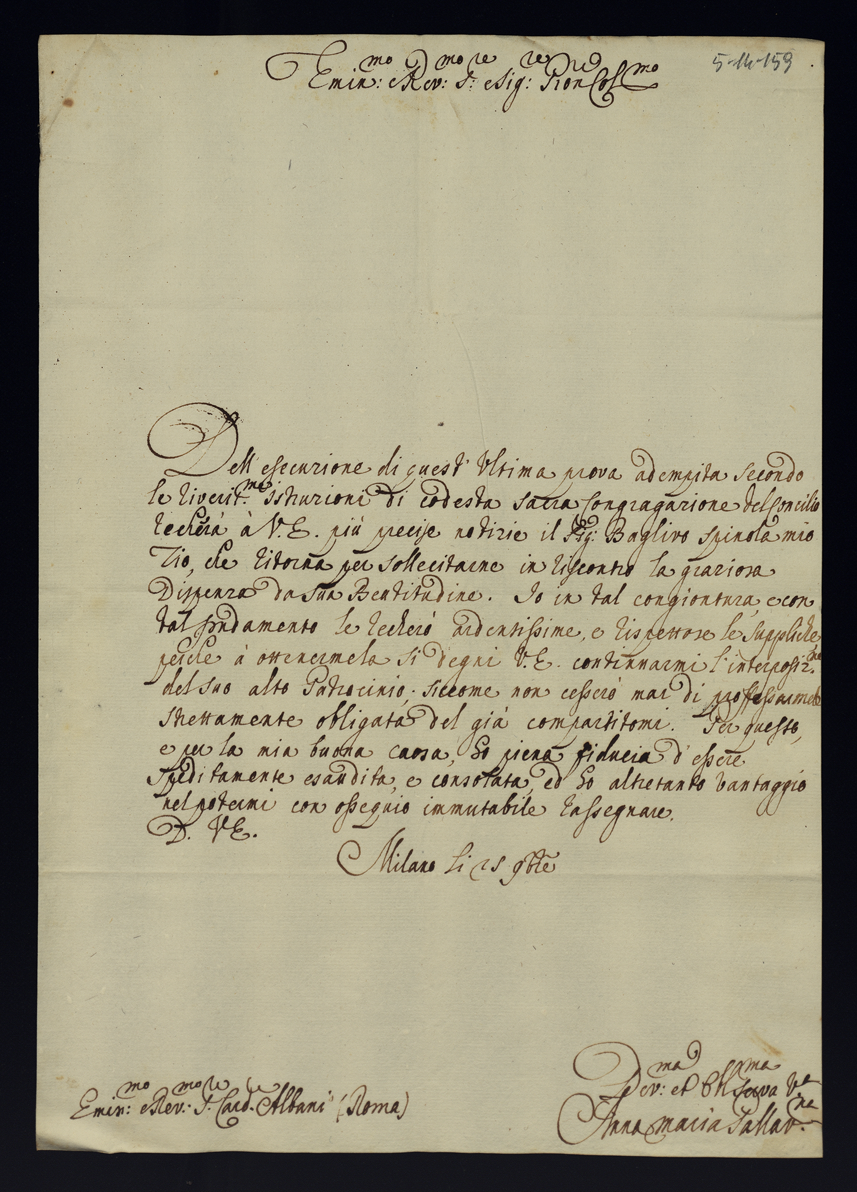 5-14-159
Emin:mo e Rev:mo S:re e Sig:re Pron Col:mo
Dell'esecuzione di quest'Ultima prova adempita secondo
le riverit.me istruzioni di codesta sacra Congragazione del Concilio
recherà à V.E. più precise notizie il Sig:r Baglivo Spinola mio
Zio, che ritorna per sollecitarne in riscontro la graziosa
Dispenza da Sua Beatitudine. Io in tal congiontura, e con
tal fondamento le recherò ardentissime, e rispettose le Suppliche
perche à ottenermela si degni V.E. continuarmi l'interposiz.ne
del suo alto Patrocinio, siccome non cesserò mai di professarmele
strettamente obligata del già compartitomi. Per questo,
e per la mia buona causa, hò piena fiducia d'essere
speditamente esaudita, e consolata, ed hò altretanto vantaggio
nel potermi con ossequio immutabile rassegnare.
D. V.E.
Milano li 25 9bre
Dev:ma et Obl:ma Serva V.ra
Anna Maria Pallav:na
Emin:mo e Rev:mo S:re Card:le Albani (Roma)